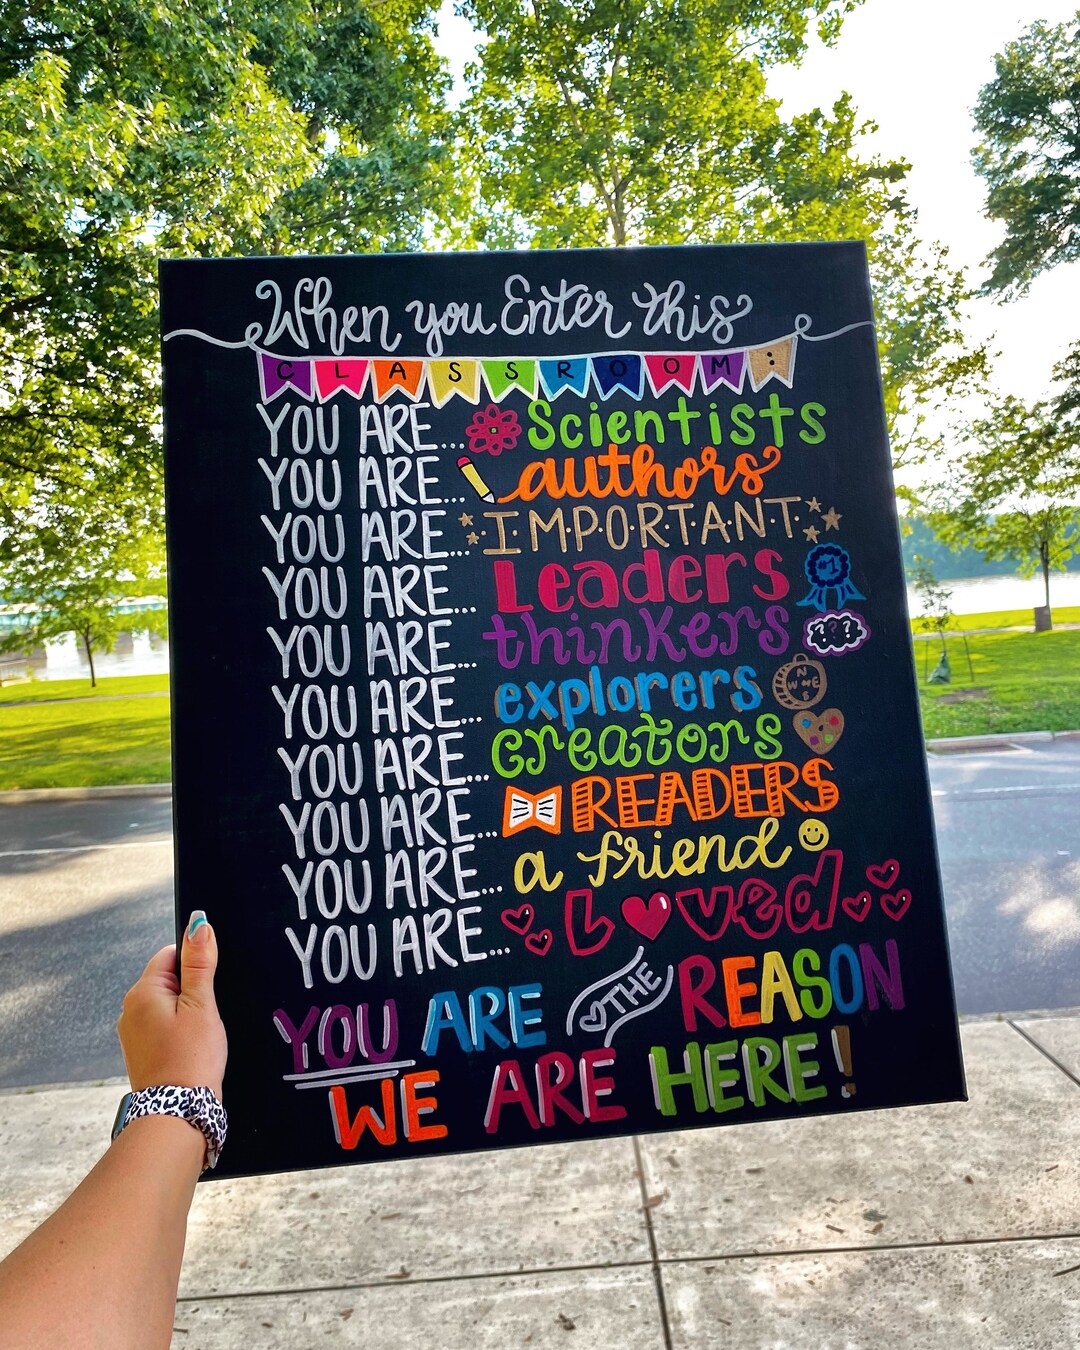 When you Enter this
CLASSROOM:
YOU ARE... Scientists
YOU ARE... authors
YOU ARE... I·M·P·O·R·T·A·N·T
YOU ARE... Leaders #1
YOU ARE... thinkers ???
YOU ARE... explorers N W E S
YOU ARE... creators
YOU ARE... READERS
YOU ARE... a friend
YOU ARE... Loved
YOU ARE THE REASON
WE ARE HERE!